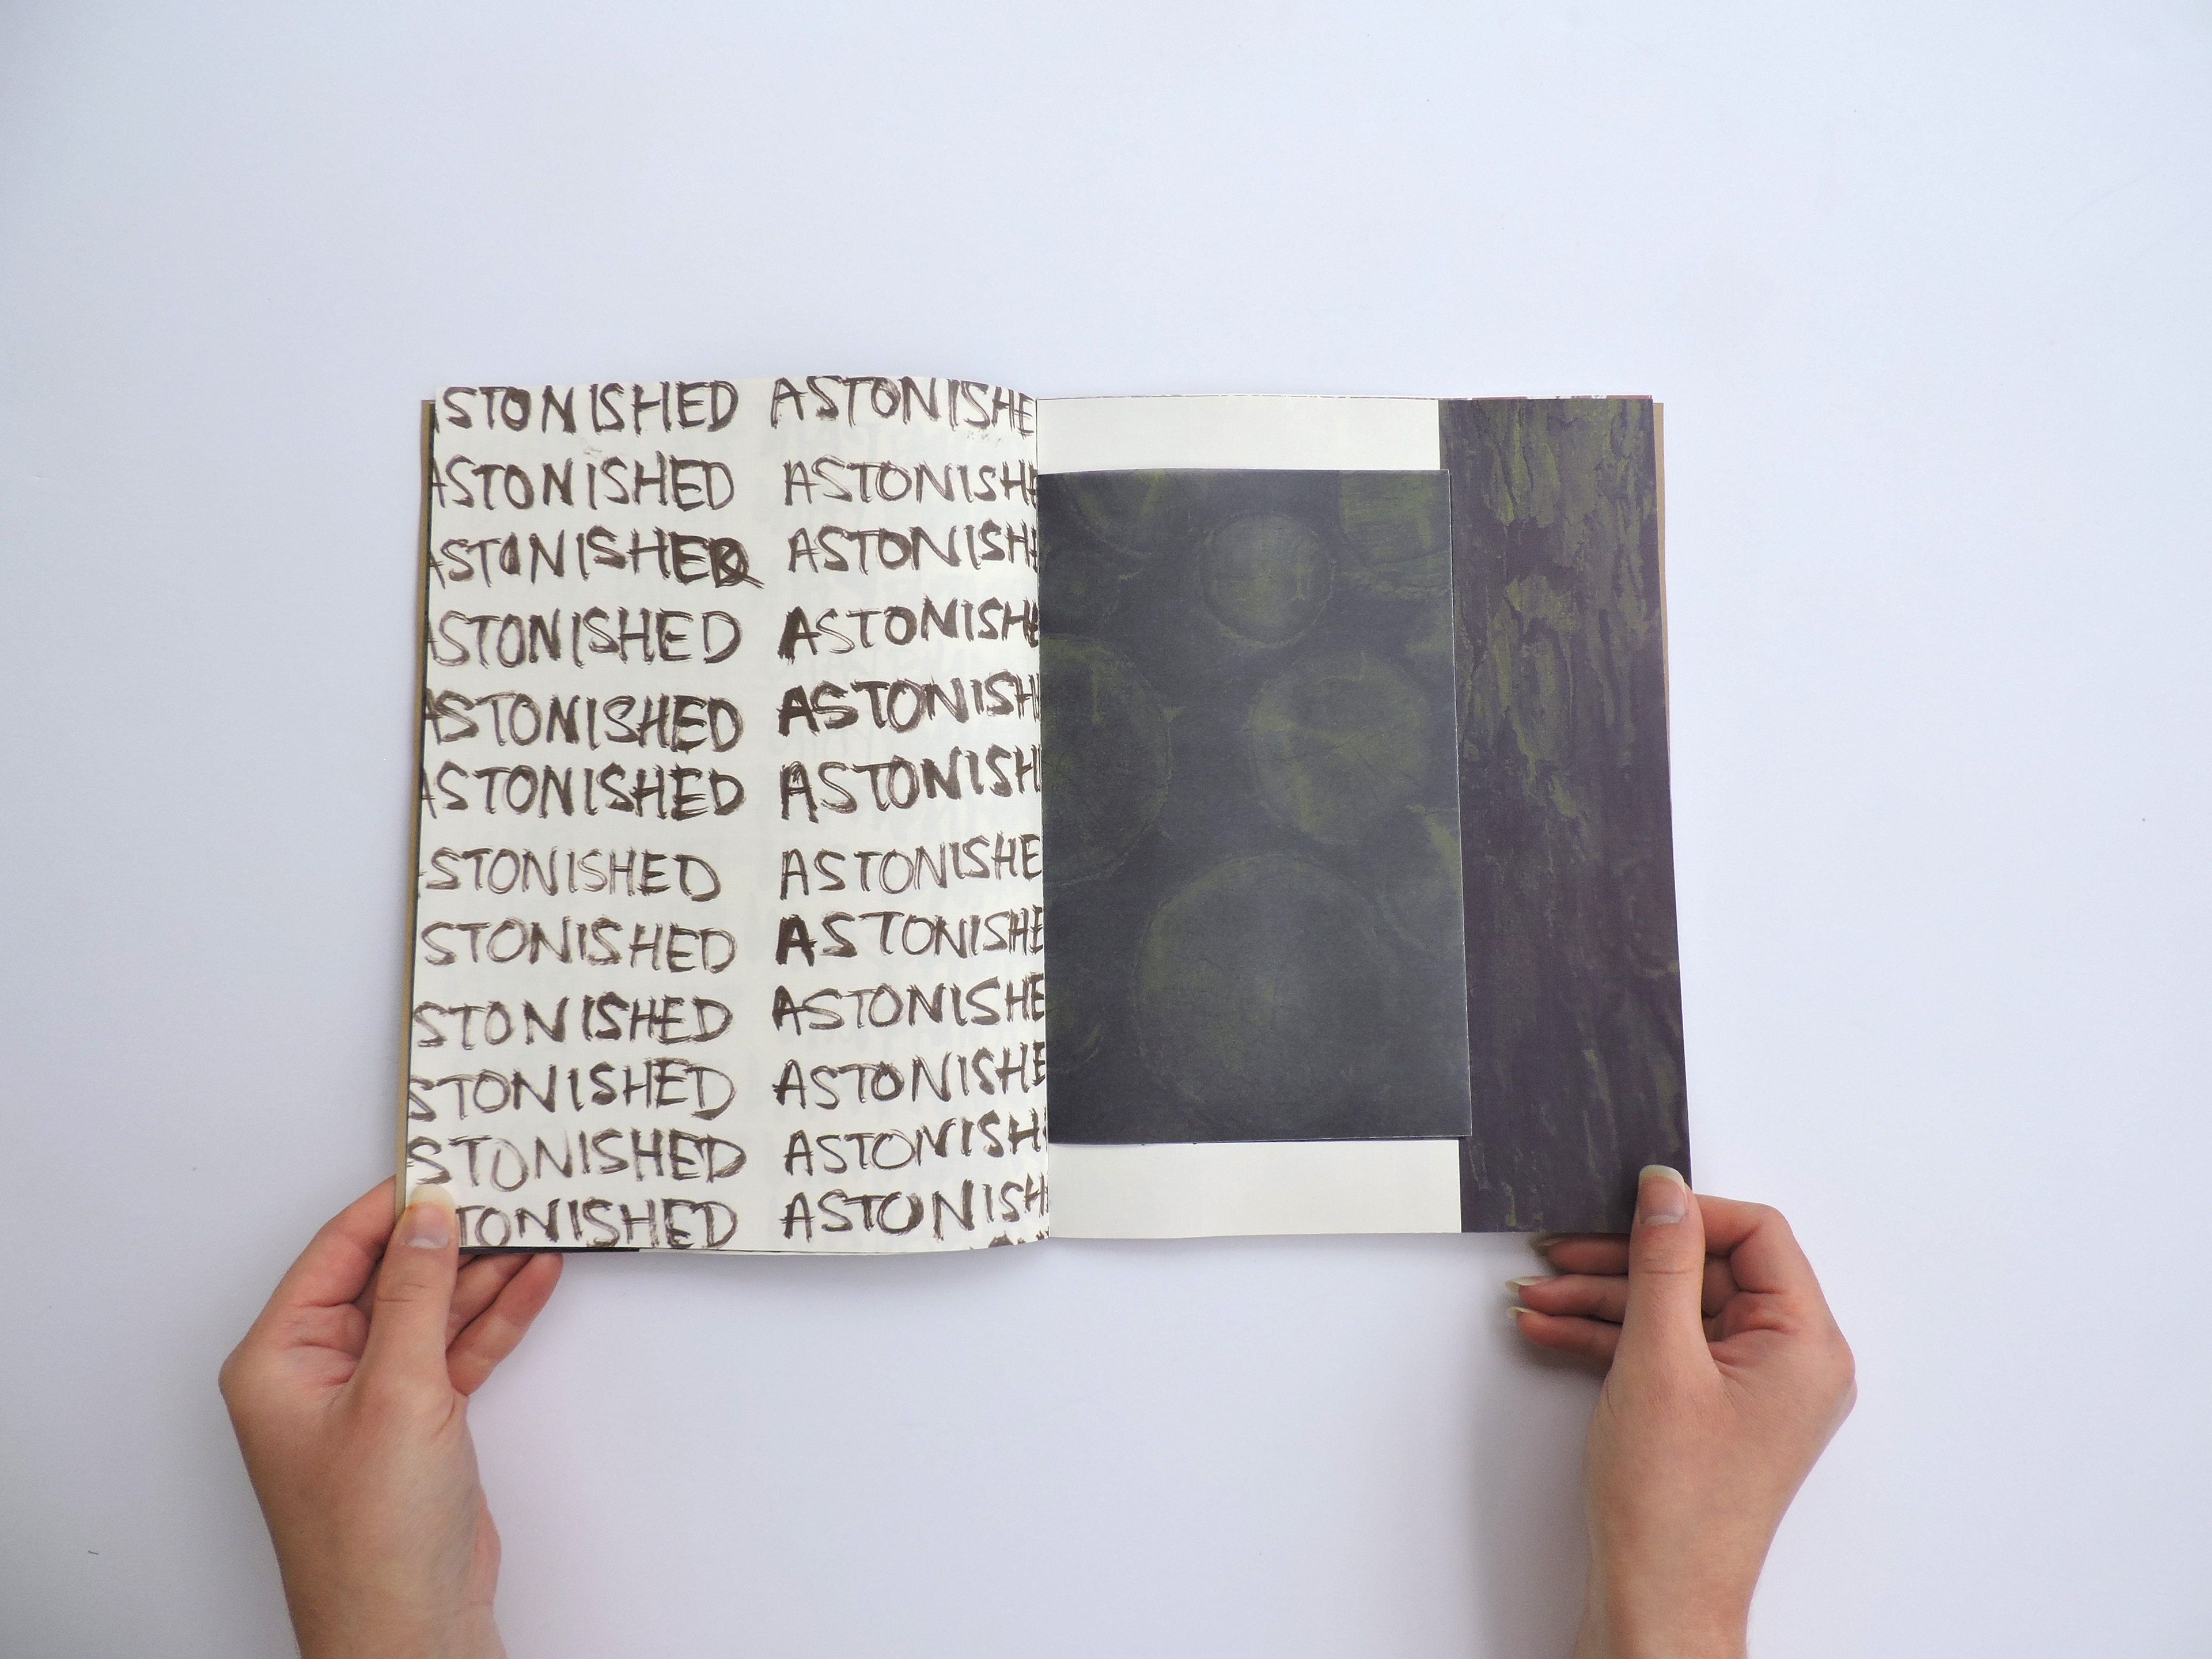 STONISHED ASTONISHE
ASTONISHED ASTONISH
ASTONISHED ASTONISH
ASTONISHED ASTONISHE
ASTONISHED ASTONISH
ASTONISHED ASTONISH
STONISHED ASTONISHE
STONISHED ASTONISHE
STONISHED ASTONISHE
STONISHED ASTONISHE
STONISHED ASTONISH
TONISHED ASTONISH